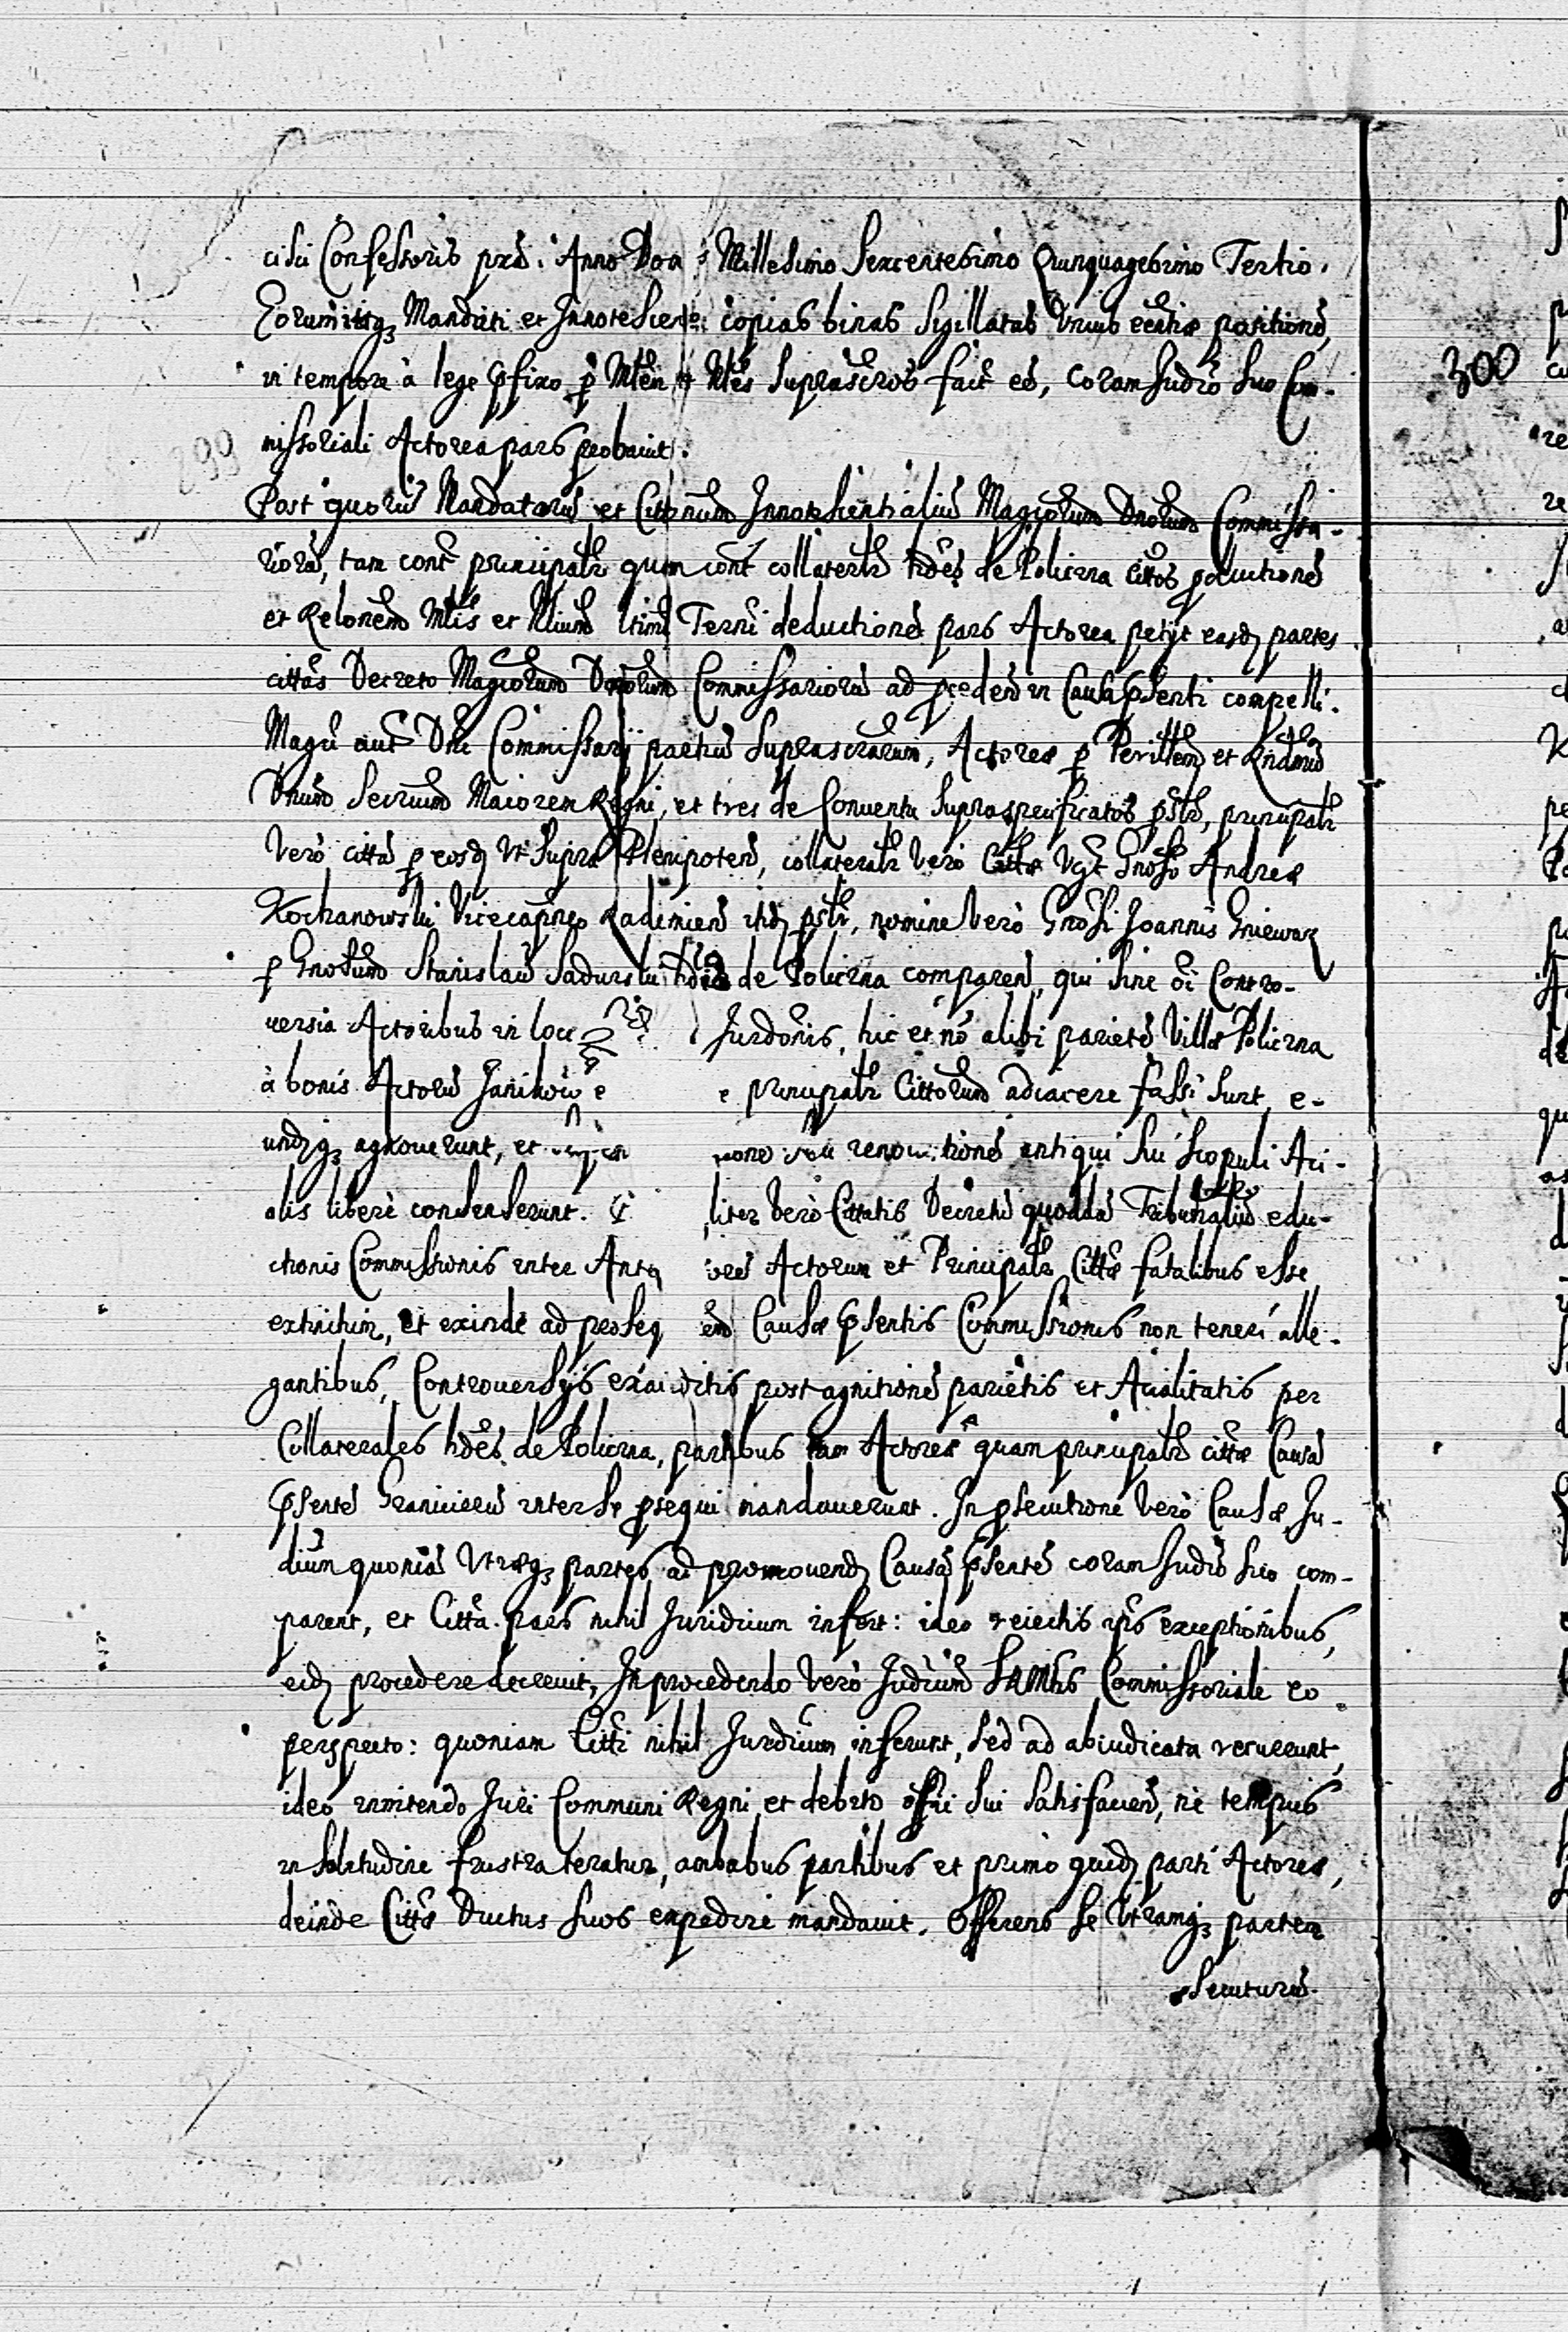 cisci Confessoris pxd: Anno Dña Millesimo Sexcentesimo Quinquagesimo Tertio.
Eorumq; Mandati et Innotescent: copias binas Sigillatas positionẽ,
in tempore à lege pfixo p Mtẽm et Mtẽs Suprascros fact eõ, coram Judiõ suo Com-
missoriali Actorea pars probavit.
299
300
Post quorũ Mandatorũ et Cittonum Innotescentialiũ Magcorum Dnorum Commissa-
riorũ, tam contr principalr quam contr collaterlr hdẽs de Policzna Cittos poductionẽ
et Relonem Mtis et Terni deductionẽ pars Actorea petijt easdȝ partes
cittãs Decreto Magcorum Dnorum Commissariorũ ad pcedend in Causa pśenti compelli.
Magci aut Dni Commissarij partiũ Suprascrarum, Actoreæ p Perillrem et Rndmum
Dnum Secrium Maiorem Regni, et tres de Conventu Supraspecificatos pstr, principalr
Verò citta p eosdȝ Vt Supra Plenipoten, collateralr Verò Cittæ Vgt Gnoso Andreæ
Kochanowski Vicecapneo Radomien pstr, nomine Verò Gnosi Joannis Gniewosz
p Gnosum Stanislaũ Sadurski de Policzna comparen, qui sine õi Contro-
versia Actoribus in loco Jurdonis, hic et nõ alibi parietẽ Villæ Policzna
à bonis Actorũ Janikow e principalr Cittorum adiacere fassi sunt, e-
undȝq; agnoverunt, et renovationẽ antiqui sui scopuli Aci-
alis liberè consenserunt. liter Verò Cittatis Decretũ quoddã Tribunaliũ edu-
ctionis Commissionis inter Ante Actorum et Principalr Cittæ fatalibus esse
extinctum, et exinde ad proseq Causæ pśentis Commissionis non teneri alle-
gantibus, Controversijs exauditis post agnitionẽ parietis et Acialitatis per
Collaterales hdẽs de Policzna, partibus tam Actoreæ quam principalr cittæ Causã
pśentẽ Granicierũ inter se psequi mandaverunt. In psecutione Verò Causæ, Ju-
dium quoniã Vtræq; partes ad promovendȝ Causã pśentẽ coram Judiõ suo com-
parent, et Citta pars nihil Juridicium infert: ideo reiectis exceptionibus,
eidȝ procedere decrevit, In procedendo Verò Judicium Commissoriale eo
perspecto: quoniam Citti nihil Jurdicum inferunt, sed ad abiudicata recurrunt,
ideo innitendo Juri Communi Regni et debito offi sui Satisfacien, ne tempus
in Solitudine frustra teratur, ambabus partibus et primò quidȝ parti Actoreæ,
deinde Cittæ Ductus suos expedire mandavit. Offerens se Vtramq; partem
Secuturũ.